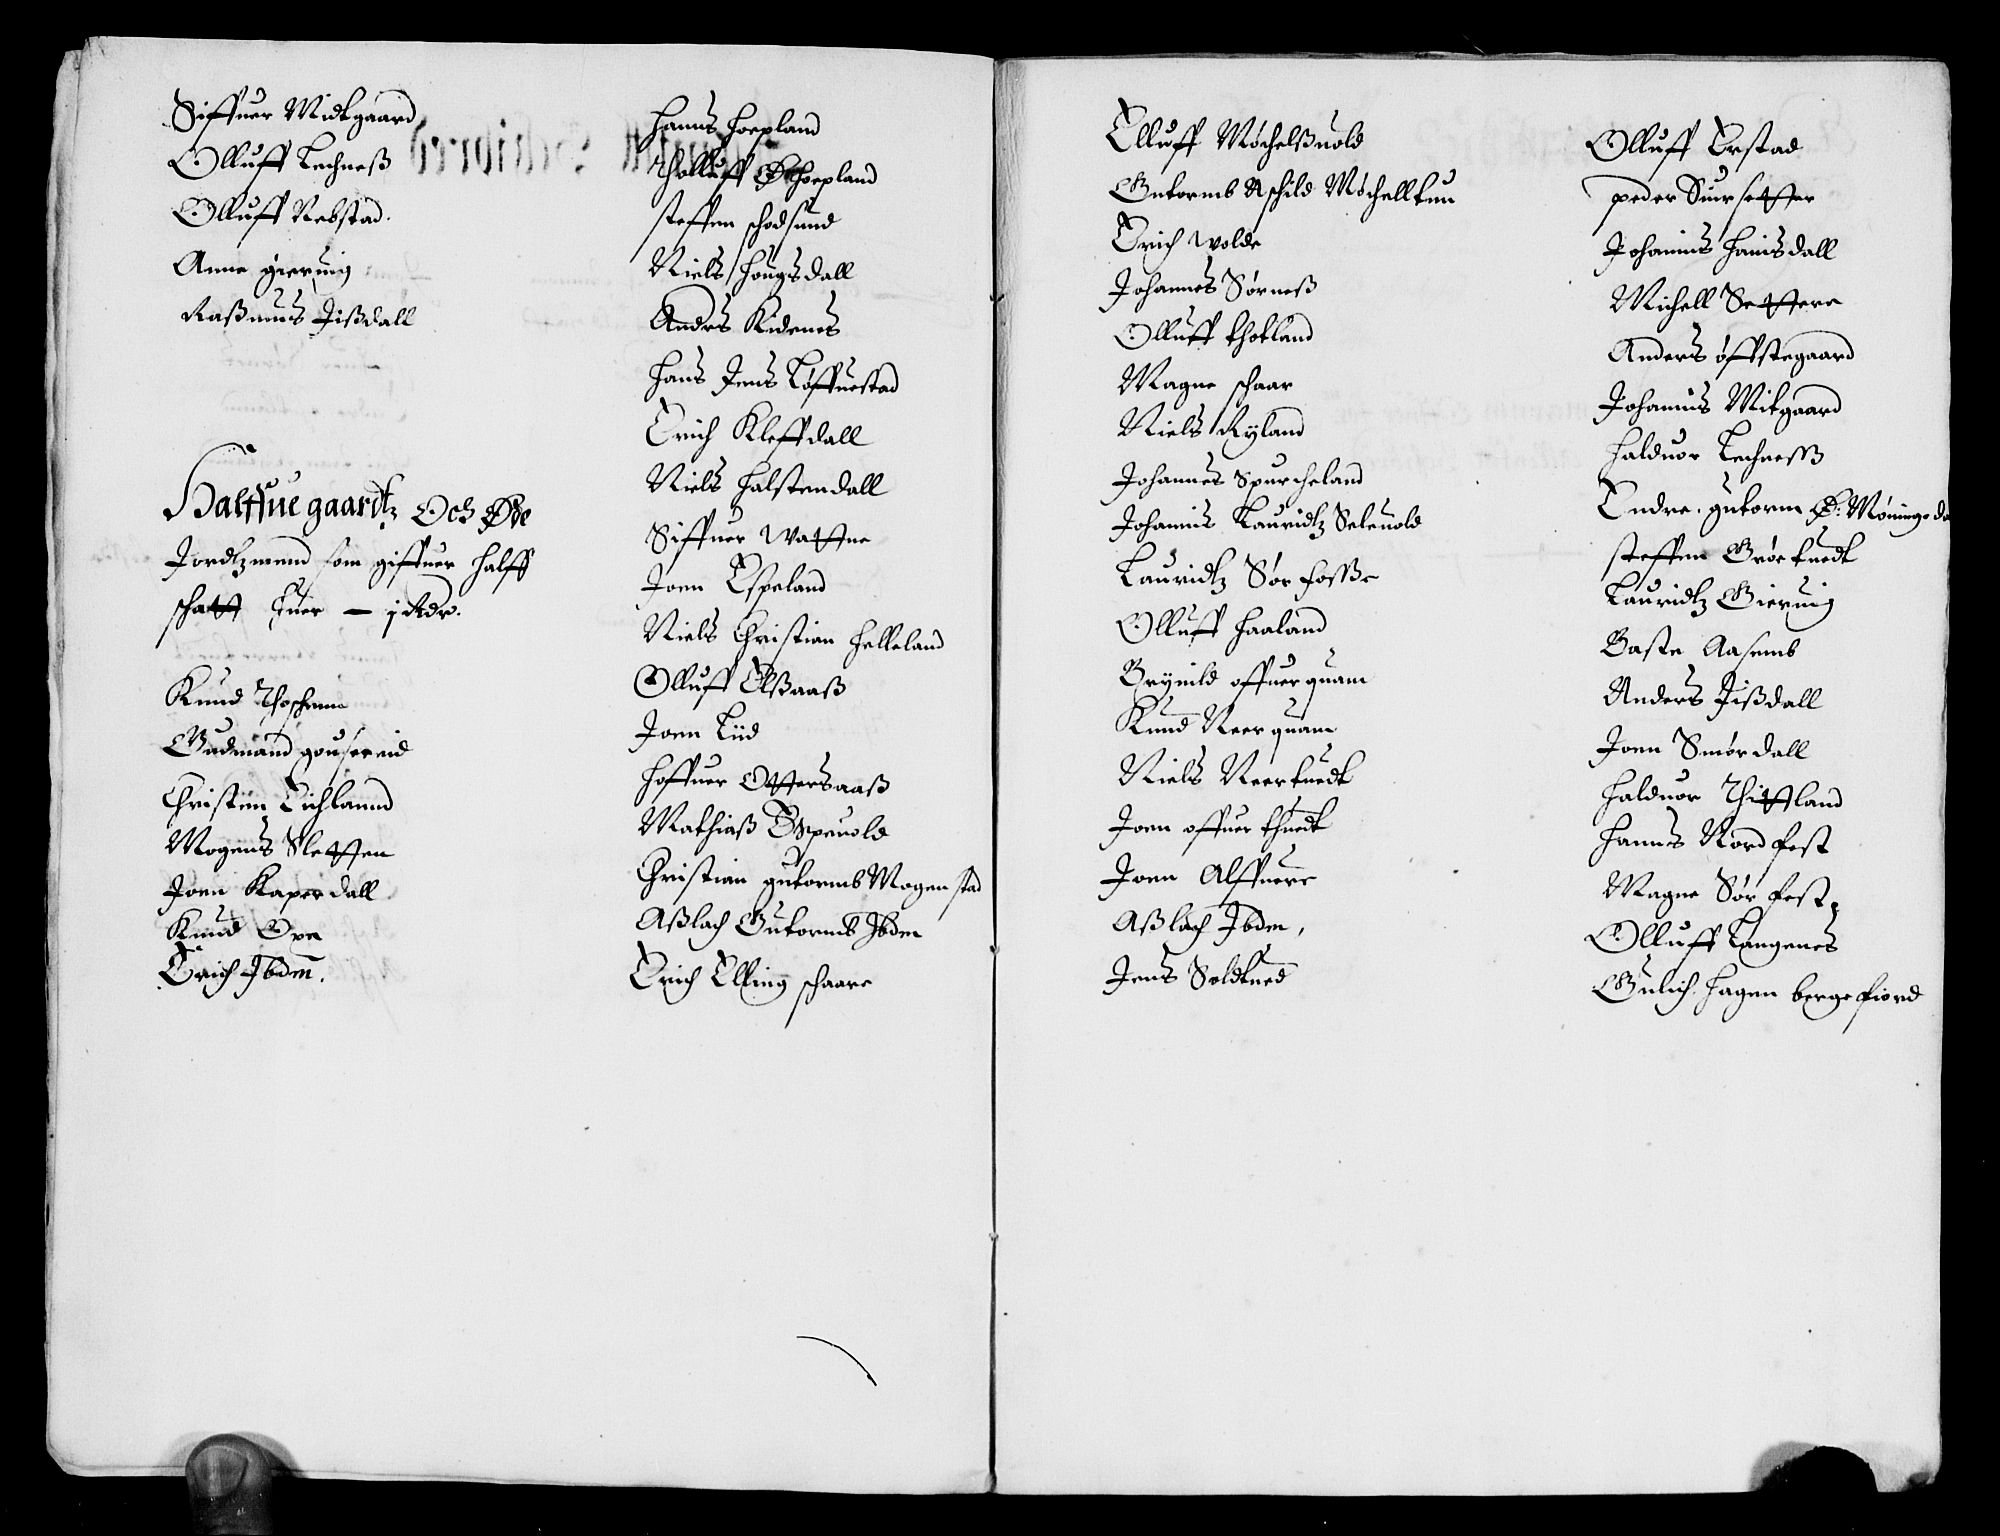 Siffuer Midtgaard
Olluff Lechneß
Olluff Rebstad.
Anne gieruig
Raßmus Jißdall
Halffue gaardtz Och Øde
Jordtzmend som giffuer halff
schatt huer — j Rdr.
Knud
Gudmand gousereid
Christen Eichlannd
Mogens Sletten
Joen Kaperdall
Knud Opn
Erich Jbdm.
Hanns hoepland
Tholluff Ø hoepland
steffen schodsund
Niels hougsdall
Andrs Kidenes
Hans Jens Løffuestad
Erich Kleffdall
Niels halstendall
Siffuer Wattne
Joen Espeland
Niels Christian helleland
Olluff Elßaaß
Joen Liid
Hoffuer Ottersaaß
Mathiaß Espeuold
Christian gutormb Mogenstad
Aßlach Gutormb Jbdm
Erich Elling schaare
Elluff Møchelßuold
Gutormb Aschild Møchelltun
Erich Wolde
Johannes Sørneß
Olluff thotland
Magne schaar
Niels Ryland
Johannes Spurcheland
Johannis Lauridtz Seleuold
Lauridtz Sør fosse
Olluff haaland
Brynild offuerquam
Knud Neerquam
Niels Neertuedt
Joen offuer thuedt
Joen Alffuere
Aßlach Jbdm,
Jens Soldtued
Olluff Erstad
peder Suirsetter
Johannis hanisdall
Michell Settere
Anders øffstegaard
Johannis Mitgaard
Halduor Lechness
Endre. gutorm Ø: Møninge da
steffen Grøetuedt
Lauridtz Gieruig
Baste Aasemb
Anders Jißdall
Joen Smørdall
Halduor Thittland
Hannes Nordfest
Magne Sørfest
Olluff Langenes
Gulich. hagen bergefiord